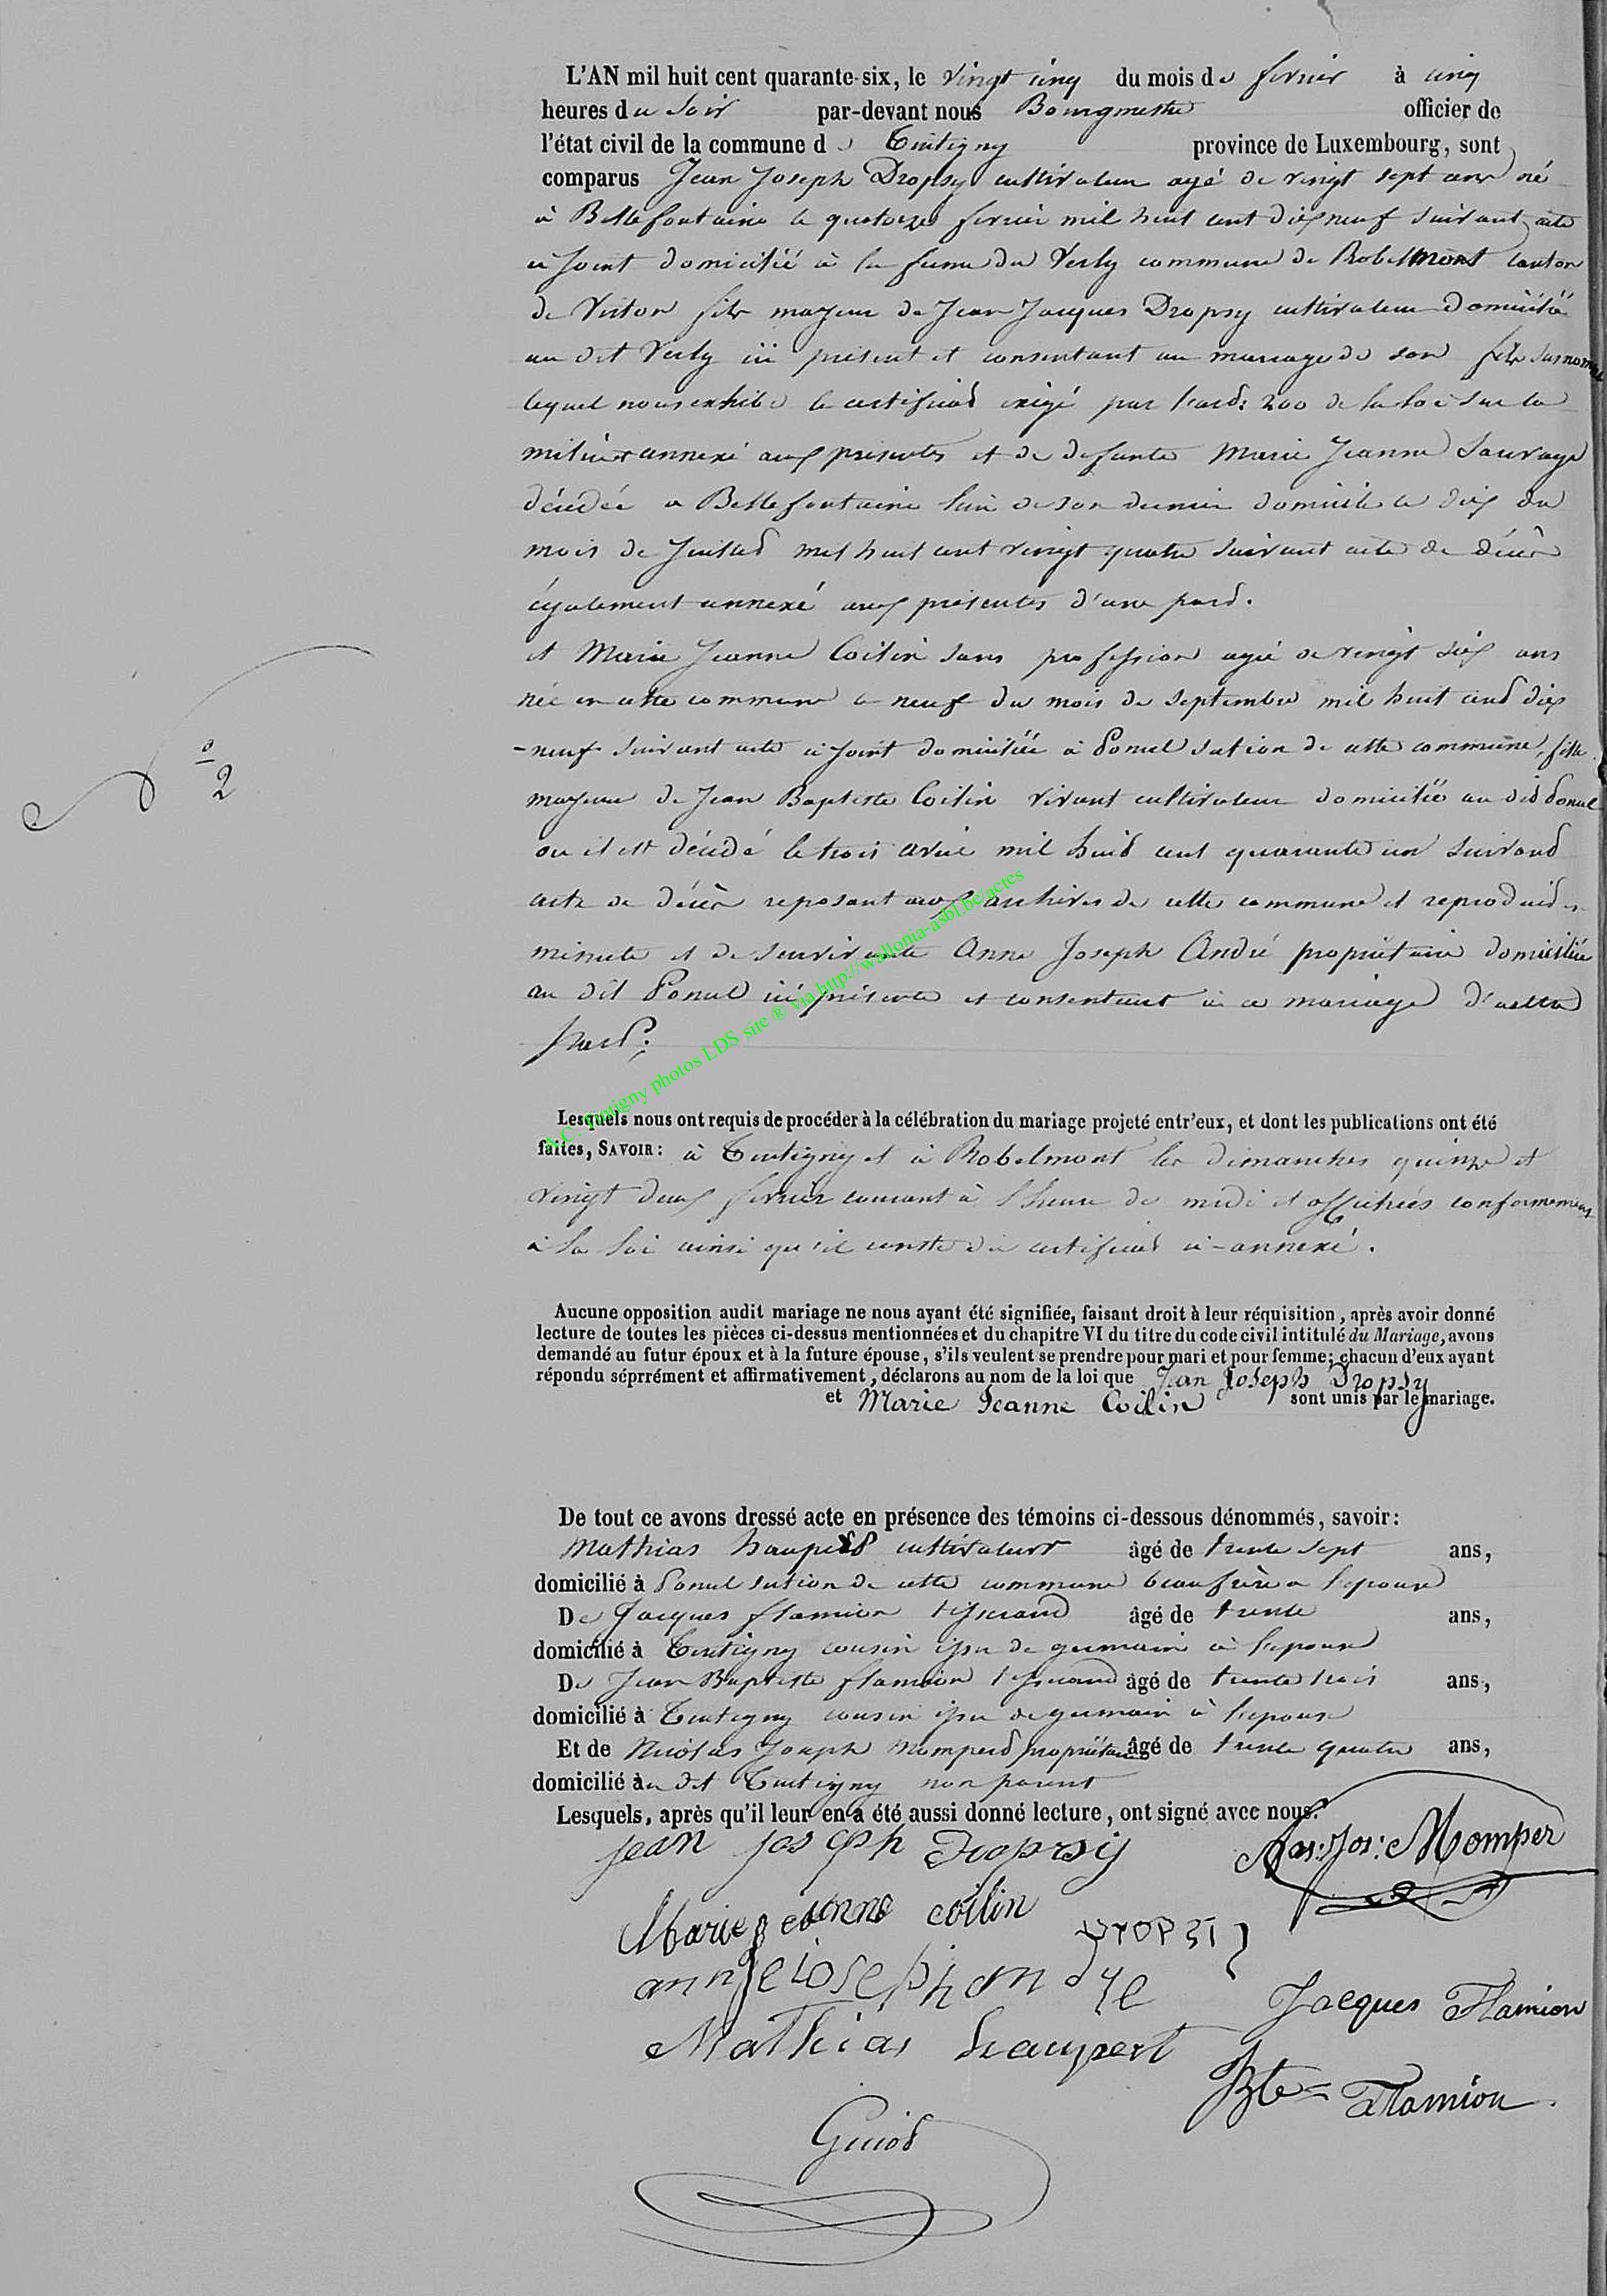 L'AN mil huit cent quarante-six, le vingt cinq du mois de fevrier à cinq
heures du soir par-devant nous Bourgmestre officier de
l'état civil de la commune de Tintigny province de Luxembourg, sont
comparus Jean Joseph Dropsy cultivateur agé de vingt sept ans né
à Bellefontaine le quatorze fevrier mil huit cent dix neuf suivant acte
ci joint domicilié à la ferme du Verly commune de Robelmont canton
de Virton fils majeur de Jean Jacques Dropsy cultivateur domicilié
au dit Verly ici présent et consentant au mariage de son fils susnommé
lequel nous exhibe le certificat exigé par l'art: 200 de la loi sur la
milice annexé aux présentes et de defunte Marie Jeanne Sauvage
décédée a Bellefontaine lieu de son dernier domicile le dix du
mois de Juillet mil huit cent vingt quatre suivant acte de décès
également annexé aux présentes d'une part.
et Marie Jeanne Coilin sans profession agée de vingt six ans
née en cette commune le neuf du mois de septembre mil huit cent dix
-neuf suivant acte ci joint domiciliée à Poncel section de cette commune, fille
majeure de Jean Baptiste Coilin vivant cultivateur domicilié au dit Poncel
ou il est décédé le trois avril mil huit cent quarante un suivant
acte de décès reposant aux archives de cette commune et reproduit en
minute et de survivante Anne Joseph André propriétaire domiciliée
au dit Poncel ici présente et consentant à ce mariage d'autre
part;
Lesquels nous ont requis de procéder à la célébration du mariage projeté entr'eux, et dont les publications ont été
faites, SAVOIR: à Tintigny et à Robelmont les dimanches quinze et
vingt deux fevrier courant à l'heure de midi et affichées conformement
à la loi ainsi qu'il conste du certificat ci-annexé.
Aucune opposition audit mariage ne nous ayant été signifiée, faisant droit à leur réquisition, après avoir donné
lecture de toutes les pièces ci-dessus mentionnées et du chapitre VI du titre du code civil intitulé du Mariage, avons
demandé au futur époux et à la future épouse, s'ils veulent se prendre pour mari et pour femme; chacun d'eux ayant
répondu séprrément et affirmativement, déclarons au nom de la loi que Jean Joseph Dropsy
et Marie Jeanne Coilin sont unis par le mariage.
De tout ce avons dressé acte en présence des témoins ci-dessous dénommés, savoir:
Mathias haupert cultivateur âgé de trente sept ans,
domicilié à Poncel section de cette commune beau frère a l'epouse
De Jacques flamion tisserand âgé de trente ans,
domicilié à Tintigny cousin issu de germain à l'epouse
De Jean Baptiste flamion tisserand âgé de trente trois ans,
domicilié à Tintigny cousin issu de germain à l'epouse
Et de Nicolas Joseph Momper propriétaire âgé de trente quatre ans,
domicilié au dit Tintigny non parent
Lesquels, après qu'il leur en a été aussi donné lecture, ont signé avec nous.
jean joseph Dropsy
Nas: Jos: Momper
Marie jeanne coilin
DropSi
anne iosephandre
Jacques Flamion
Mathias haupert
Bte= Flamion
Guiot
2
A.C. Tintigny photos LDS site ® via http://wallonia-asbl.be/actes